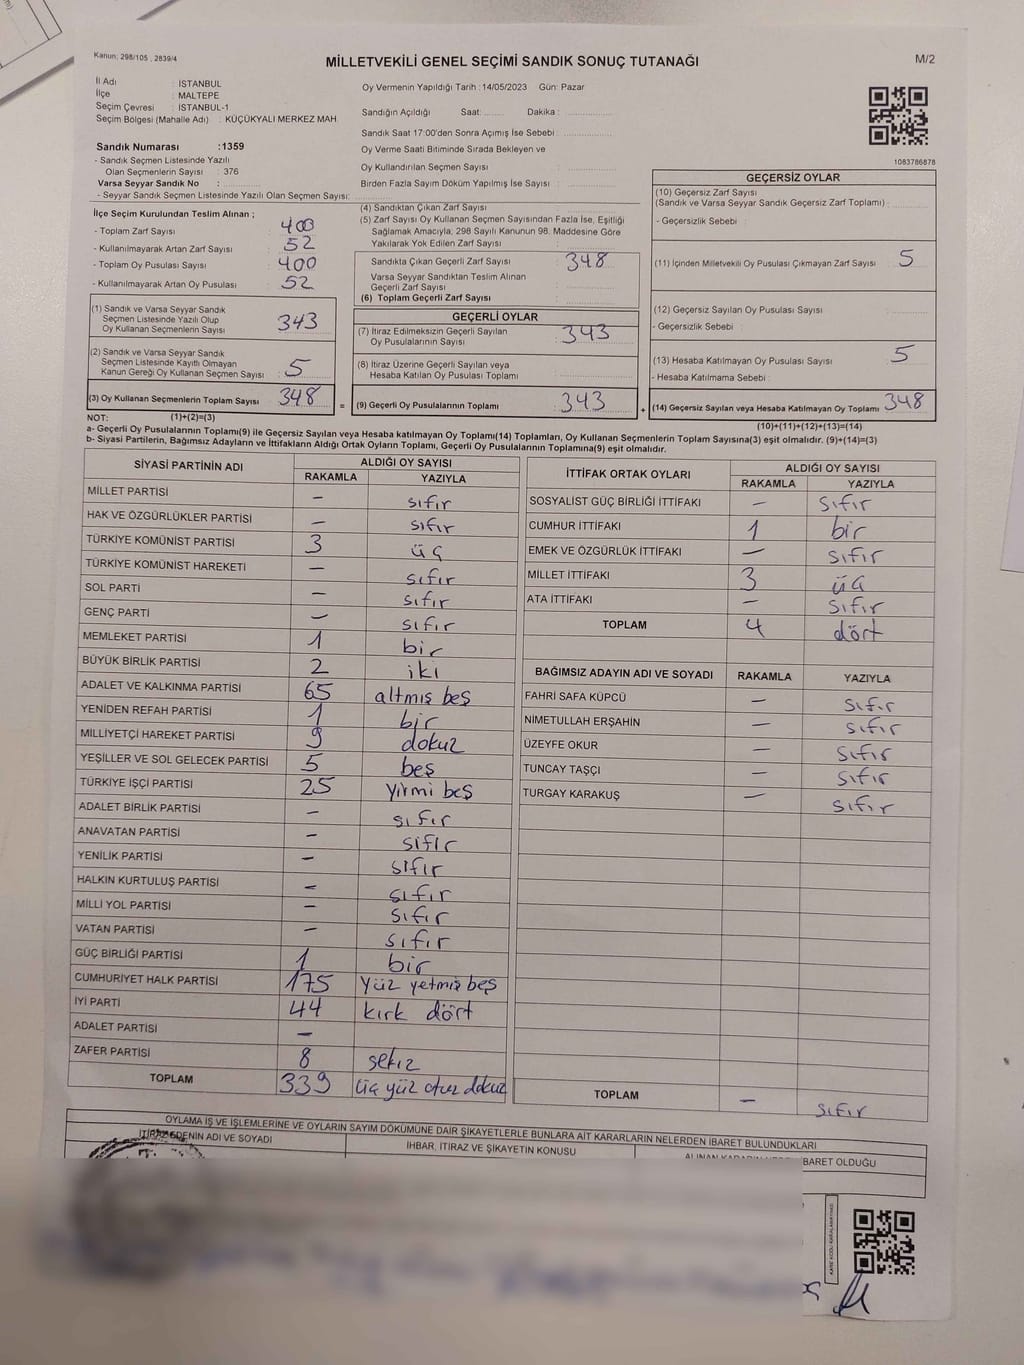 Kanun: 298/105 , 2839/4
MİLLETVEKİLİ GENEL SEÇİMİ SANDIK SONUÇ TUTANAĞI
M/2
İl Adı : İSTANBUL
İlçe : MALTEPE
Seçim Çevresi : İSTANBUL-1
Seçim Bölgesi (Mahalle Adı) : KÜÇÜKYALI MERKEZ MAH.
Sandık Numarası :1359
- Sandık Seçmen Listesinde Yazılı
Olan Seçmenlerin Sayısı : 376
Varsa Seyyar Sandık No :
- Seyyar Sandık Seçmen Listesinde Yazılı Olan Seçmen Sayısı:
Oy Vermenin Yapıldığı Tarih : 14/05/2023 Gün: Pazar
Sandığın Açıldığı Saat: Dakika :
Sandık Saat 17:00'den Sonra Açımış İse Sebebi :
Oy Verme Saati Bitiminde Sırada Bekleyen ve
Oy Kullandırılan Seçmen Sayısı :
Birden Fazla Sayım Döküm Yapılmış İse Sayısı :
1083786878
İlçe Seçim Kurulundan Teslim Alınan ;
- Toplam Zarf Sayısı : 400
- Kullanılmayarak Artan Zarf Sayısı : 52
- Toplam Oy Pusulası Sayısı : 400
- Kullanılmayarak Artan Oy Pusulası : 52
(1) Sandık ve Varsa Seyyar Sandık
Seçmen Listesinde Yazılı Olup
Oy Kullanan Seçmenlerin Sayısı : 343
(2) Sandık ve Varsa Seyyar Sandık
Seçmen Listesinde Kayıtlı Olmayan
Kanun Gereği Oy Kullanan Seçmen Sayısı : 5
(3) Oy Kullanan Seçmenlerin Toplam Sayısı : 348
(4) Sandıktan Çıkan Zarf Sayısı :
(5) Zarf Sayısı Oy Kullanan Seçmen Sayısından Fazla İse, Eşitliği
Sağlamak Amacıyla; 298 Sayılı Kanunun 98. Maddesine Göre
Yakılarak Yok Edilen Zarf Sayısı :
Sandıkta Çıkan Geçerli Zarf Sayısı : 348
Varsa Seyyar Sandıktan Teslim Alınan
Geçerli Zarf Sayısı :
(6) Toplam Geçerli Zarf Sayısı :
GEÇERLİ OYLAR
(7) İtiraz Edilmeksizin Geçerli Sayılan
Oy Pusulalarının Sayısı : 343
(8) İtiraz Üzerine Geçerli Sayılan veya
Hesaba Katılan Oy Pusulası Toplamı :
= (9) Geçerli Oy Pusulalarının Toplamı : 343
GEÇERSİZ OYLAR
(10) Geçersiz Zarf Sayısı
(Sandık ve Varsa Seyyar Sandık Geçersiz Zarf Toplamı) :
- Geçersizlik Sebebi :
(11) İçinden Milletvekili Oy Pusulası Çıkmayan Zarf Sayısı : 5
(12) Geçersiz Sayılan Oy Pusulası Sayısı :
- Geçersizlik Sebebi :
(13) Hesaba Katılmayan Oy Pusulası Sayısı : 5
- Hesaba Katılmama Sebebi :
+ (14) Geçersiz Sayılan veya Hesaba Katılmayan Oy Toplamı : 348
NOT: (1)+(2)=(3)
(10)+(11)+(12)+(13)=(14)
a- Geçerli Oy Pusulalarının Toplamı(9) ile Geçersiz Sayılan veya Hesaba katılmayan Oy Toplamı(14) Toplamları, Oy Kullanan Seçmenlerin Toplam Sayısına(3) eşit olmalıdır. (9)+(14)=(3)
b- Siyasi Partilerin, Bağımsız Adayların ve İttifakların Aldığı Ortak Oyların Toplamı, Geçerli Oy Pusulalarının Toplamına(9) eşit olmalıdır.
SİYASİ PARTİNİN ADI ALDIĞI OY SAYISI
RAKAMLA YAZIYLA
MİLLET PARTİSİ - sıfır
HAK VE ÖZGÜRLÜKLER PARTİSİ - sıfır
TÜRKİYE KOMÜNİST PARTİSİ 3 üç
TÜRKİYE KOMÜNİST HAREKETİ - sıfır
SOL PARTİ - sıfır
GENÇ PARTİ - sıfır
MEMLEKET PARTİSİ 1 bir
BÜYÜK BİRLİK PARTİSİ 2 iki
ADALET VE KALKINMA PARTİSİ 65 altmış beş
YENİDEN REFAH PARTİSİ 1 bir
MİLLİYETÇİ HAREKET PARTİSİ 9 dokuz
YEŞİLLER VE SOL GELECEK PARTİSİ 5 beş
TÜRKİYE İŞÇİ PARTİSİ 25 yirmi beş
ADALET BİRLİK PARTİSİ - sıfır
ANAVATAN PARTİSİ - sıfır
YENİLİK PARTİSİ - sıfır
HALKIN KURTULUŞ PARTİSİ - sıfır
MİLLİ YOL PARTİSİ - sıfır
VATAN PARTİSİ - sıfır
GÜÇ BİRLİĞİ PARTİSİ 1 bir
CUMHURİYET HALK PARTİSİ 175 yüz yetmiş beş
İYİ PARTİ 44 kırk dört
ADALET PARTİSİ -
ZAFER PARTİSİ 8 sekiz
TOPLAM 339 üç yüz otuz dokuz
İTTİFAK ORTAK OYLARI ALDIĞI OY SAYISI
RAKAMLA YAZIYLA
SOSYALİST GÜÇ BİRLİĞİ İTTİFAKI - sıfır
CUMHUR İTTİFAKI 1 bir
EMEK VE ÖZGÜRLÜK İTTİFAKI - sıfır
MİLLET İTTİFAKI 3 üç
ATA İTTİFAKI - sıfır
TOPLAM 4 dört
BAĞIMSIZ ADAYIN ADI VE SOYADI RAKAMLA YAZIYLA
FAHRİ SAFA KÜPCÜ - sıfır
NİMETULLAH ERŞAHİN - sıfır
ÜZEYFE OKUR - sıfır
TUNCAY TAŞÇI - sıfır
TURGAY KARAKUŞ - sıfır
TOPLAM - sıfır
OYLAMA İŞ VE İŞLEMLERİNE VE OYLARIN SAYIM DÖKÜMÜNE DAİR ŞİKAYETLERLE BUNLARA AİT KARARLARIN NELERDEN İBARET BULUNDUKLARI
İTİRAZ EDENİN ADI VE SOYADI
İHBAR, İTİRAZ VE ŞİKAYETİN KONUSU
İBARET OLDUĞU